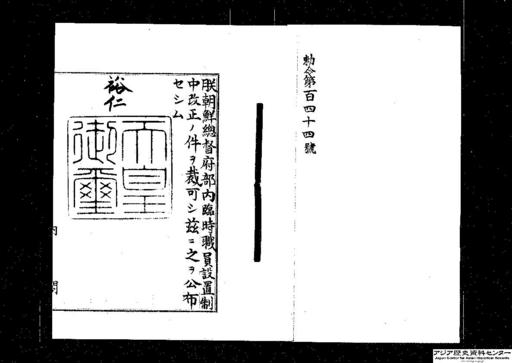 勅令第百四十四號
朕朝鮮總督府部內臨時職員設置制
中改正ノ件ヲ裁可シ茲ニ之ヲ公布
セシム
裕仁
天皇
御璽
內閣
アジア歴史資料センター
Japan Center for Asian Historical Records